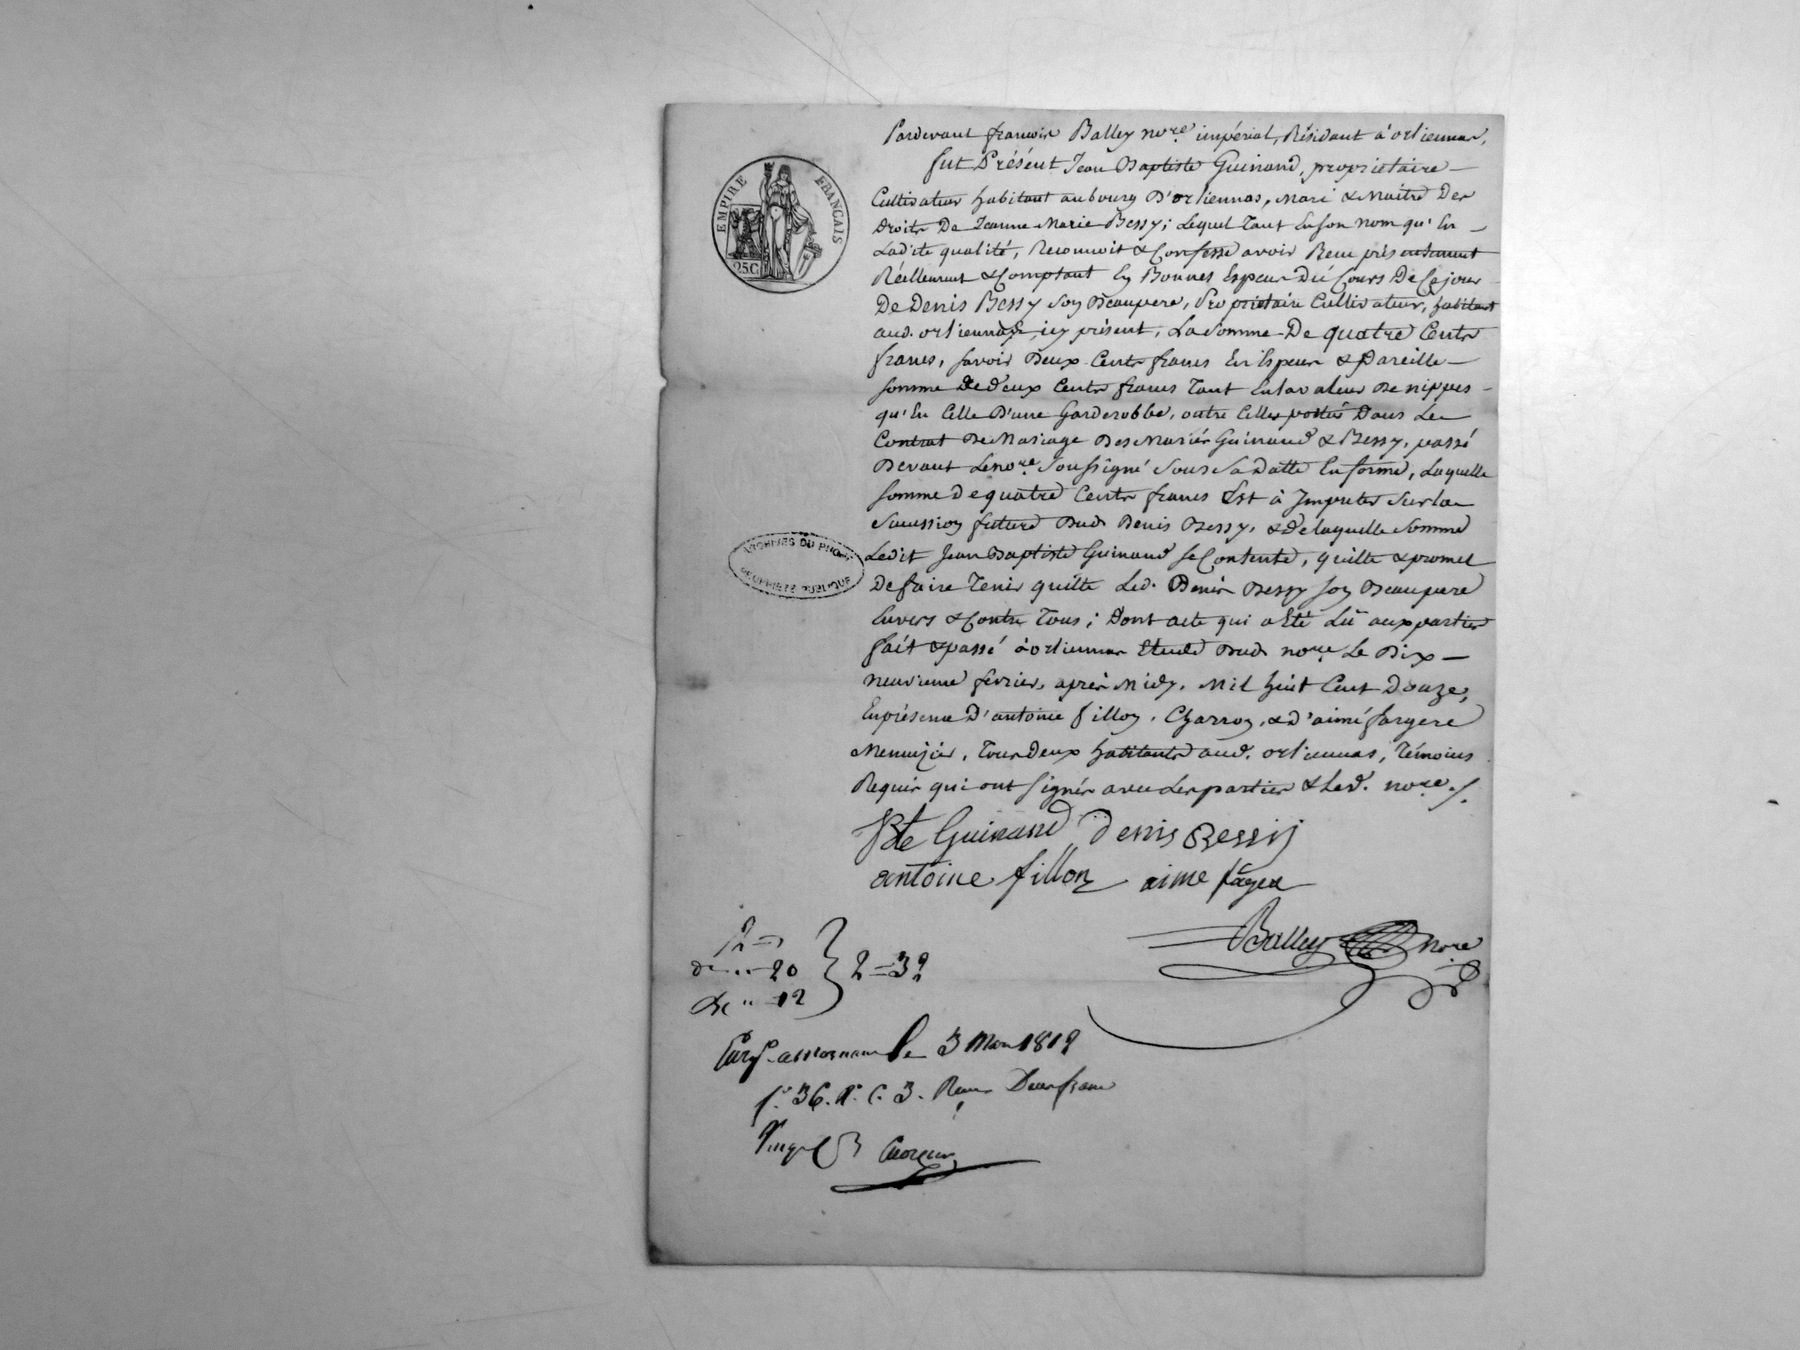 EMPIRE FRANÇAIS
25C
Pardevant françois Balley nore. impérial, Résidant à orliennas,
fut Présent Jean Baptiste Guinand, propriétaire
Cultivateur habitant au bourg D'orliennas, Mari & Maitre Des
Droits De Jeanne Marie Bessy; Lequel tant En son nom qu'En
Ladite qualité, Reconnoit & Confesse avoir Recu présentement
Réellement & Comptant En Bonnes Especes Du Cours De Ce jour
De Denis Bessy son Beaupere, Propriétaire Cultivateur, habitant
aud. orliennas, icy présent, La somme De quatre Cents
francs, savoir Deux Cents francs En Especes & Pareille
somme De Deux Cents francs tant En la valeur De nippes
qu'En Celle D'une Garderobbe, outre Celles portés Dans Le
Contrat De Mariage Des Mariés Guinand & Bessy, passé
Devant Le nore. soussigné sous sa Datte En forme, Laquelle
somme De quatre Cents francs Est à Imputer sur la
succession future Dud. Denis Bessy, & De laquelle somme
Ledit Jean Baptiste Guinand se Contente, quitte & promet
De faire tenir quitte Led. Denis Bessy son Beaupere
Envers & Contre Tous; Dont acte qui a Eté Lû aux parties
fait & passé à orliennas Etude Dud. nore. Le Dix
neuvieme février, après Midy, Mil huit Cent Douze,
En présence D'antoine fillon, Charron, & d'aimé fargere
Menuizier, tous Deux habitants aud. orliennas, témoins
Requis qui ont signés avec Les parties & Led. nore./.
Bte Guinand Denis Bessiy
antoine fillon aime
Balley nore
ARCHIVES DU RHONE
PROPRIÉTÉ PUBLIQUE
2 =
de .. - 20
2 = 32
.. - 12
le 3 Mars 1812
fo. 36. Ro. C. 3. Recu Deux francs